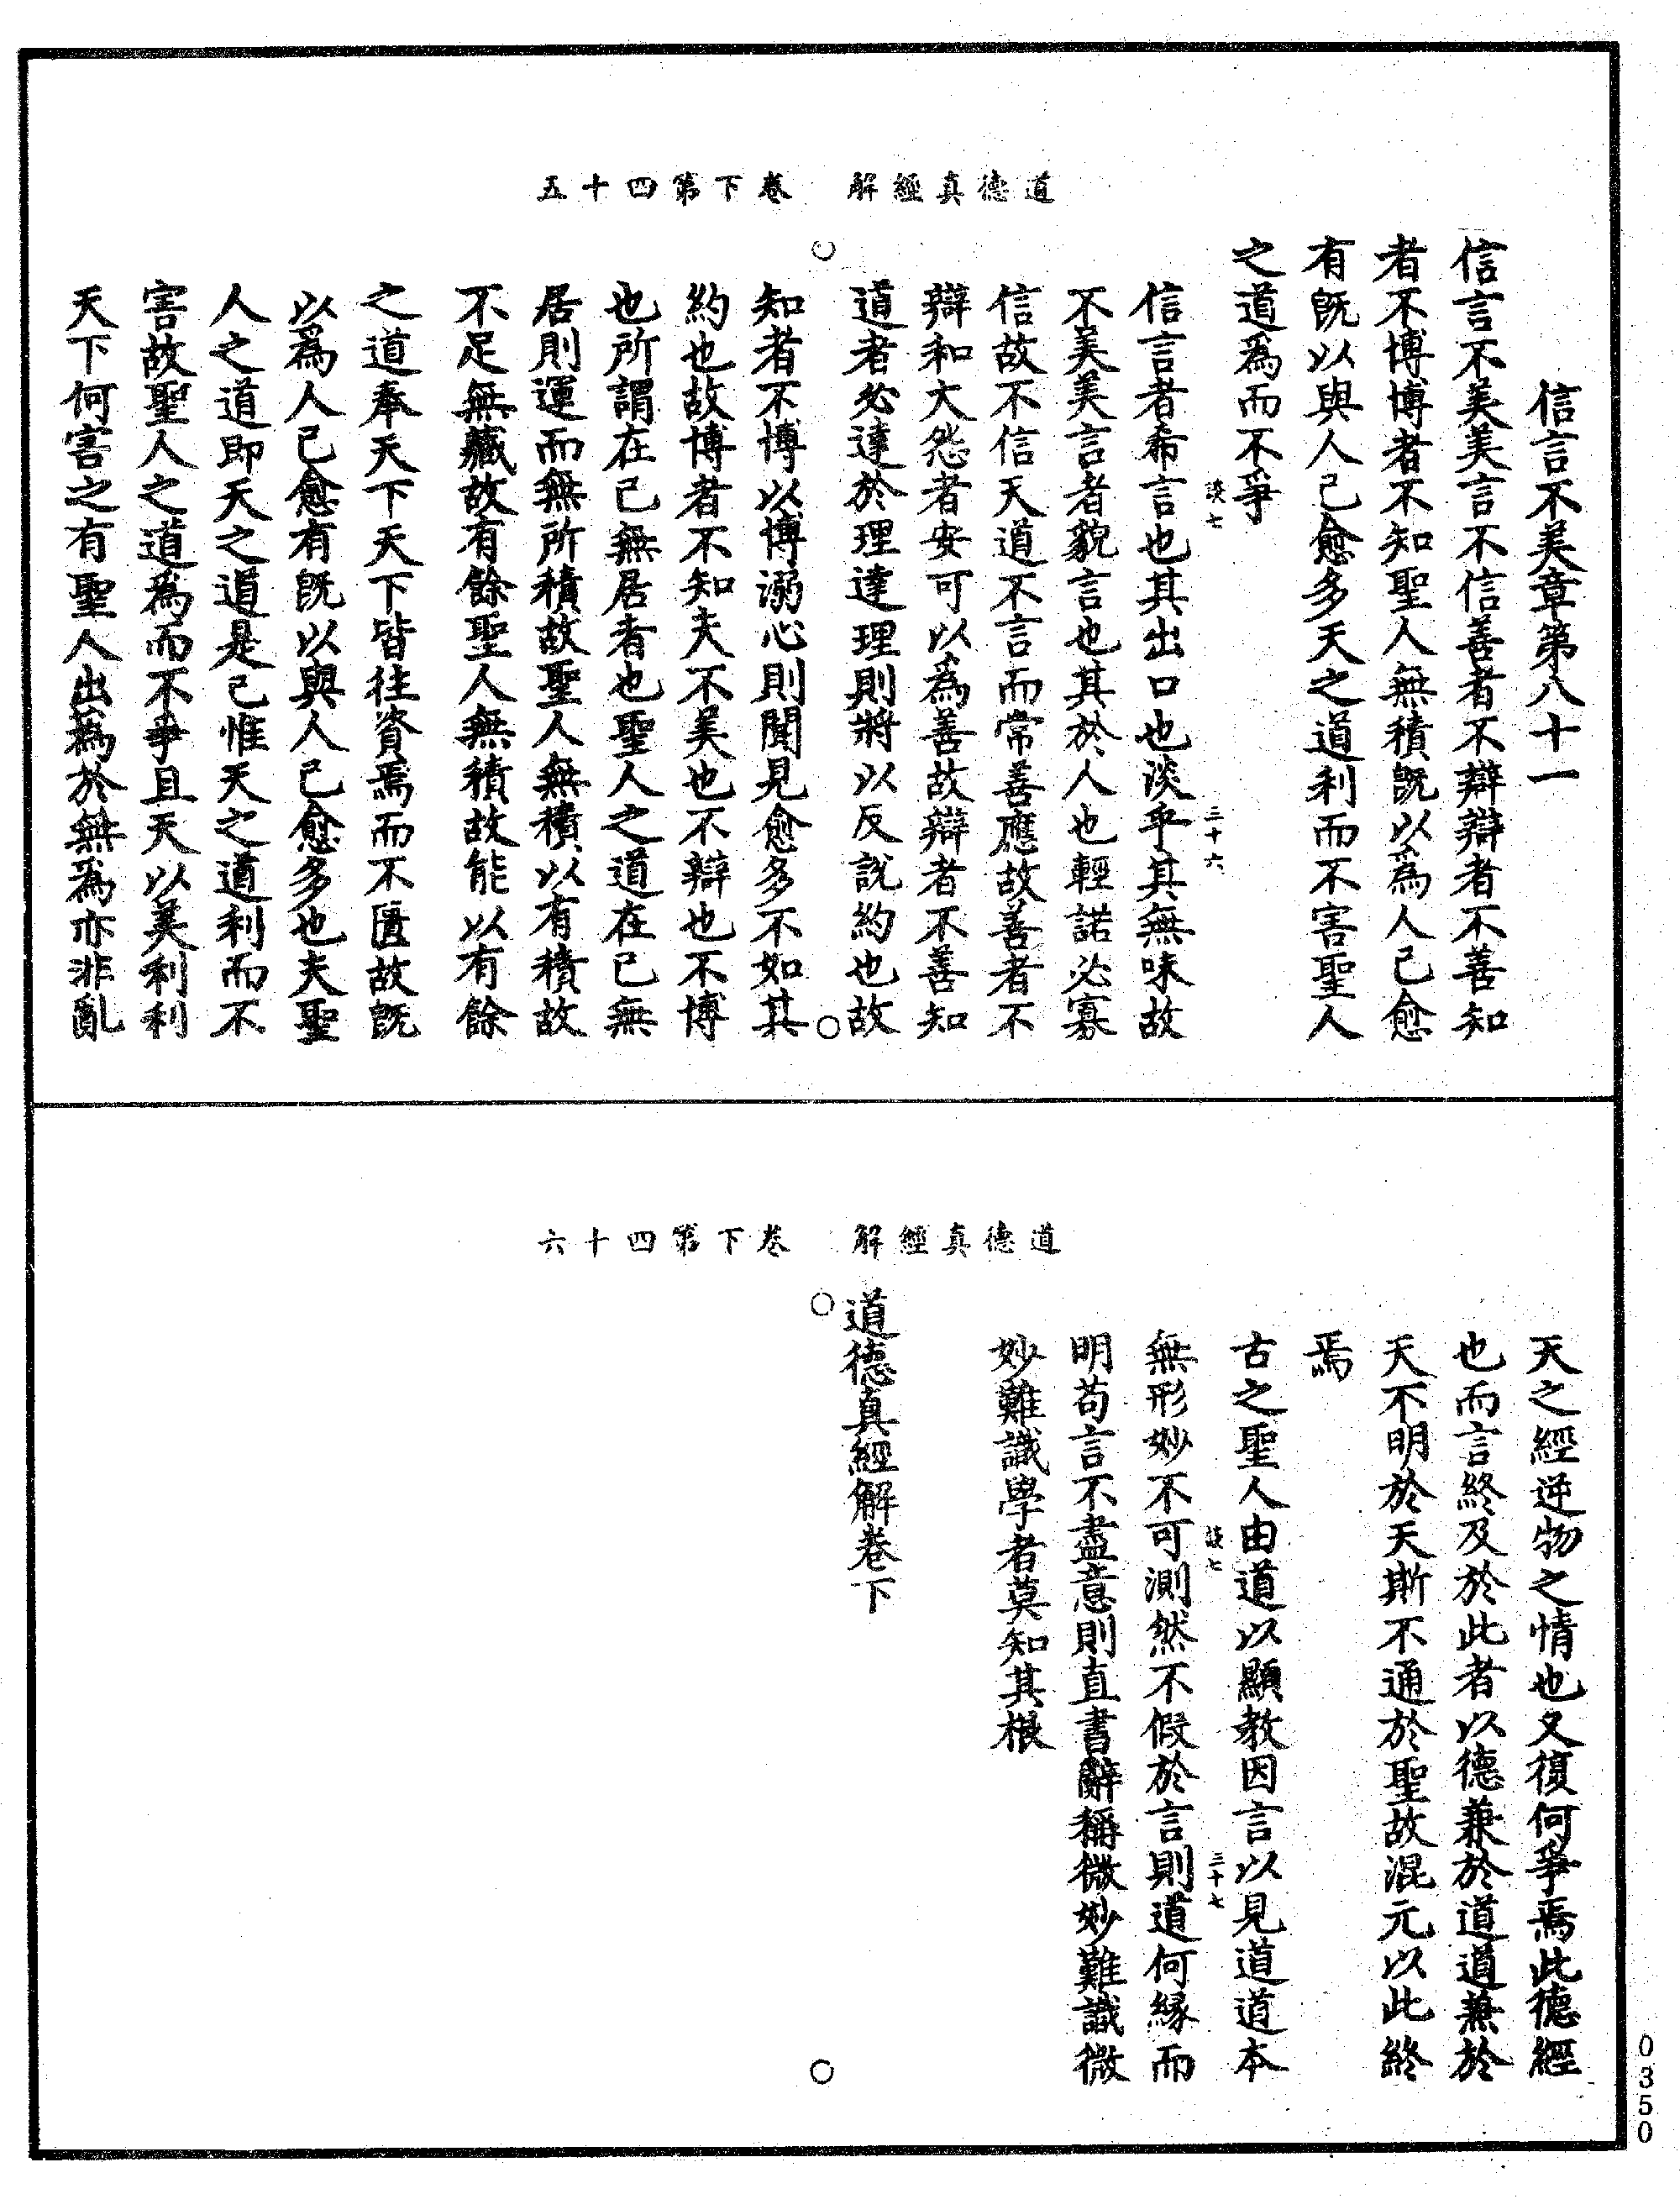 道德真經解　卷下第四十五
信言不美章第八十一
信言不美美言不信善者不辯辯者不善知
者不博博者不知聖人無積既以爲人己愈
有既以與人己愈多天之道利而不害聖人
之道爲而不爭
談七
三十六
信言者希言也其出口也淡乎其無味故
不美美言者貌言也其於人也輕諾必寡
信故不信天道不言而常善應故善者不
辯和大怨者安可以爲善故辯者不善知
道者必達於理達理則將以反說約也故
知者不博以博溺心則聞見愈多不如其
約也故博者不知夫不美也不辯也不博
也所謂在己無居者也聖人之道在己無
居則運而無所積故聖人無積以有積故
不足無藏故有餘聖人無積故能以有餘
之道奉天下天下皆往資焉而不匱故既
以爲人己愈有既以與人己愈多也夫聖
人之道即天之道是已惟天之道利而不
害故聖人之道爲而不爭且天以美利利
天下何害之有聖人出爲於無爲亦非亂
道德真經解　卷下第四十六
天之經逆物之情也又復何爭焉此德經
也而言終及於此者以德兼於道道兼於
天不明於天斯不通於聖故混元以此終
焉
古之聖人由道以顯教因言以見道道本
談七
三十七
無形妙不可測然不假於言則道何緣而
明苟言不盡意則直書辭稱微妙難識微
妙難識學者莫知其根
道德真經解卷下
0350